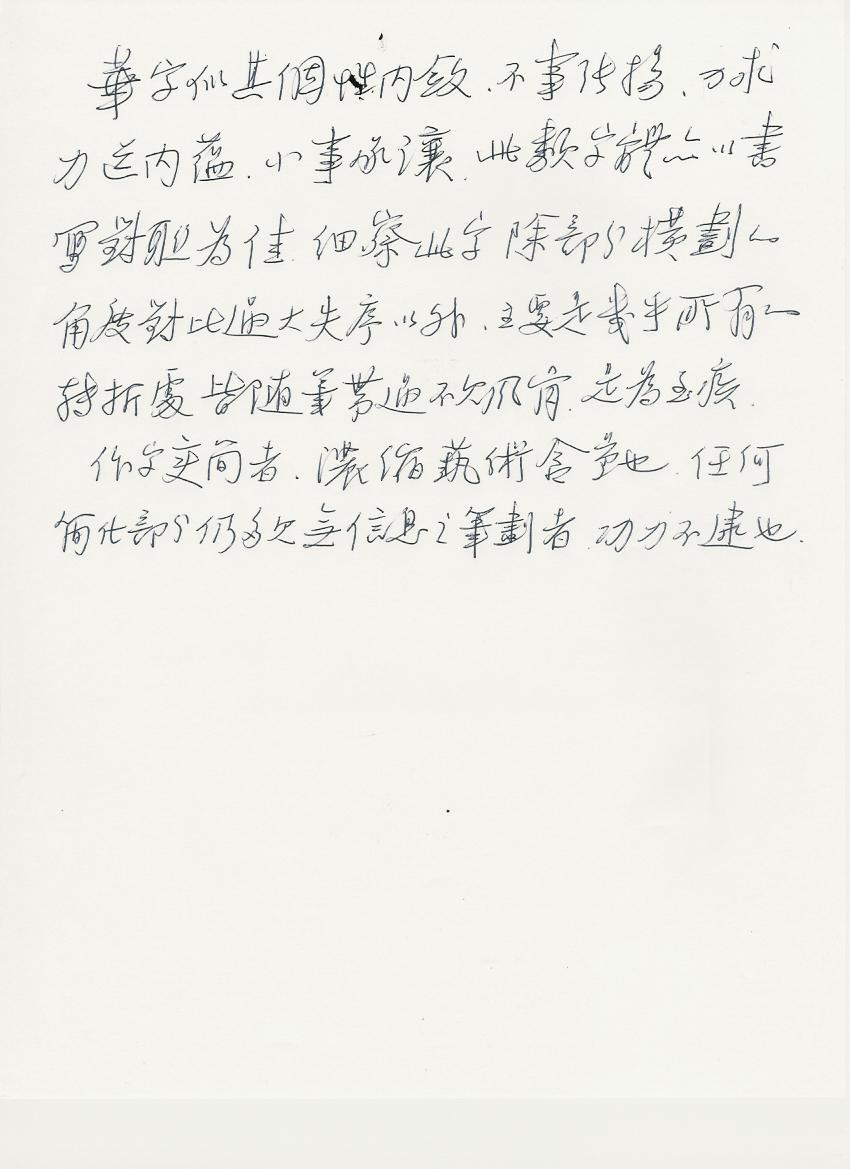 華字似其個性內斂.不事張揚.力求
力道內蘊.小事承讓.此類字體亦以書
寫對聯為佳.細察此字除部分橫劃之
角度對比過大失序以外.主要是幾乎所有之
轉折處皆隨筆帶過不欠仍有.是為至疾.
作字變簡者.濃縮藝術含意也.任何
簡化部分仍多欠無信息之筆劃者.功力不逮也.